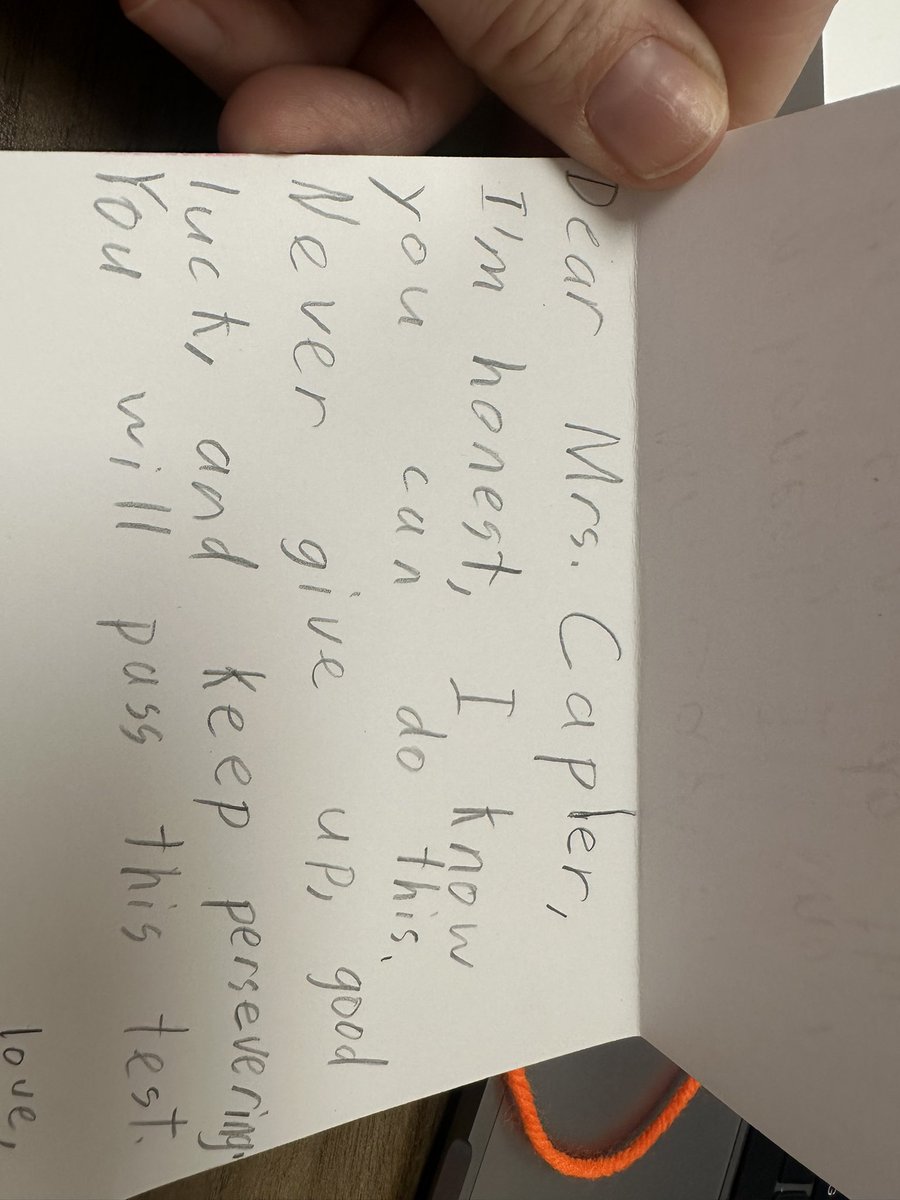 Dear Mrs. Capler,
I'm honest, I know
you can do this.
Never give up, good
luck, and keep persevering.
You will pass this test.
love,